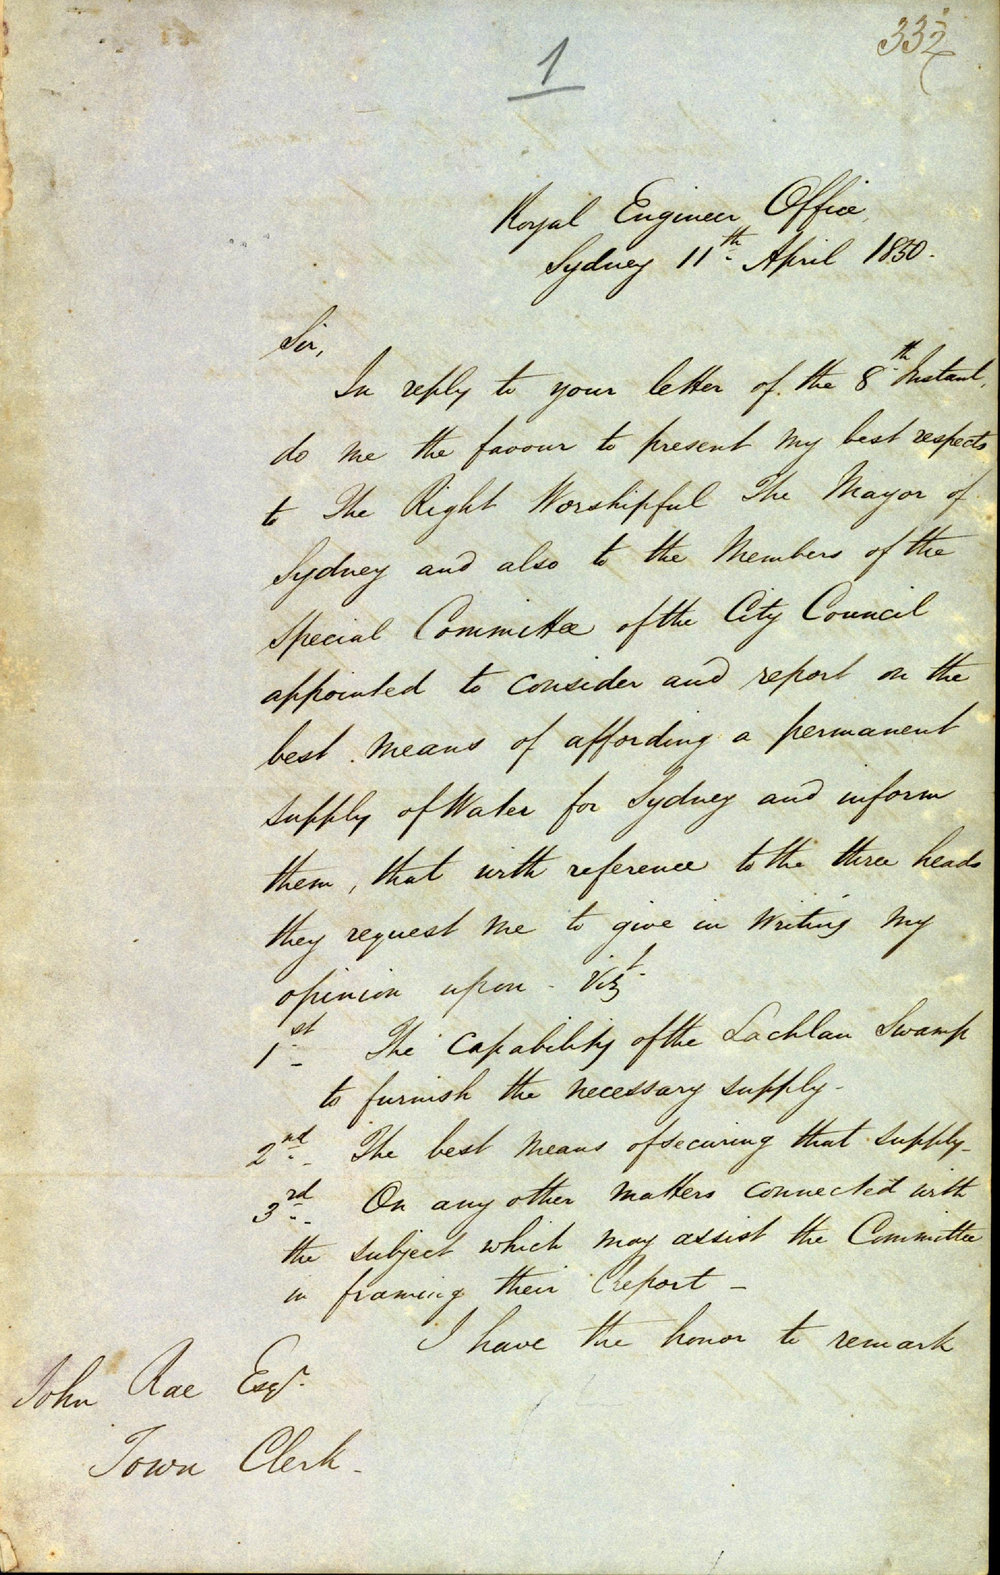 332
1
Royal Engineer Office,
Sydney 11th April 1850.
Sir,
In reply to your letter of the 8th Instant,
do me the favour to present my best respects
to The Right Worshipful The Mayor of
Sydney and also to the Members of the
Special Committee of the City Council
appointed to consider and report on the
best means of affording a permanent
supply of Water for Sydney and inform
them, that with reference to the three heads
they request me to give in writing my
opinion upon - Vizt.
1st - The Capability of the Lachlan Swamp
to furnish the necessary supply -
2nd - The best means of securing that supply -
3rd - On any other matters connected with
the subject which may assist the Committee
in framing their Report -
I have the honor to remark
John Rae Esqr.
Town Clerk -